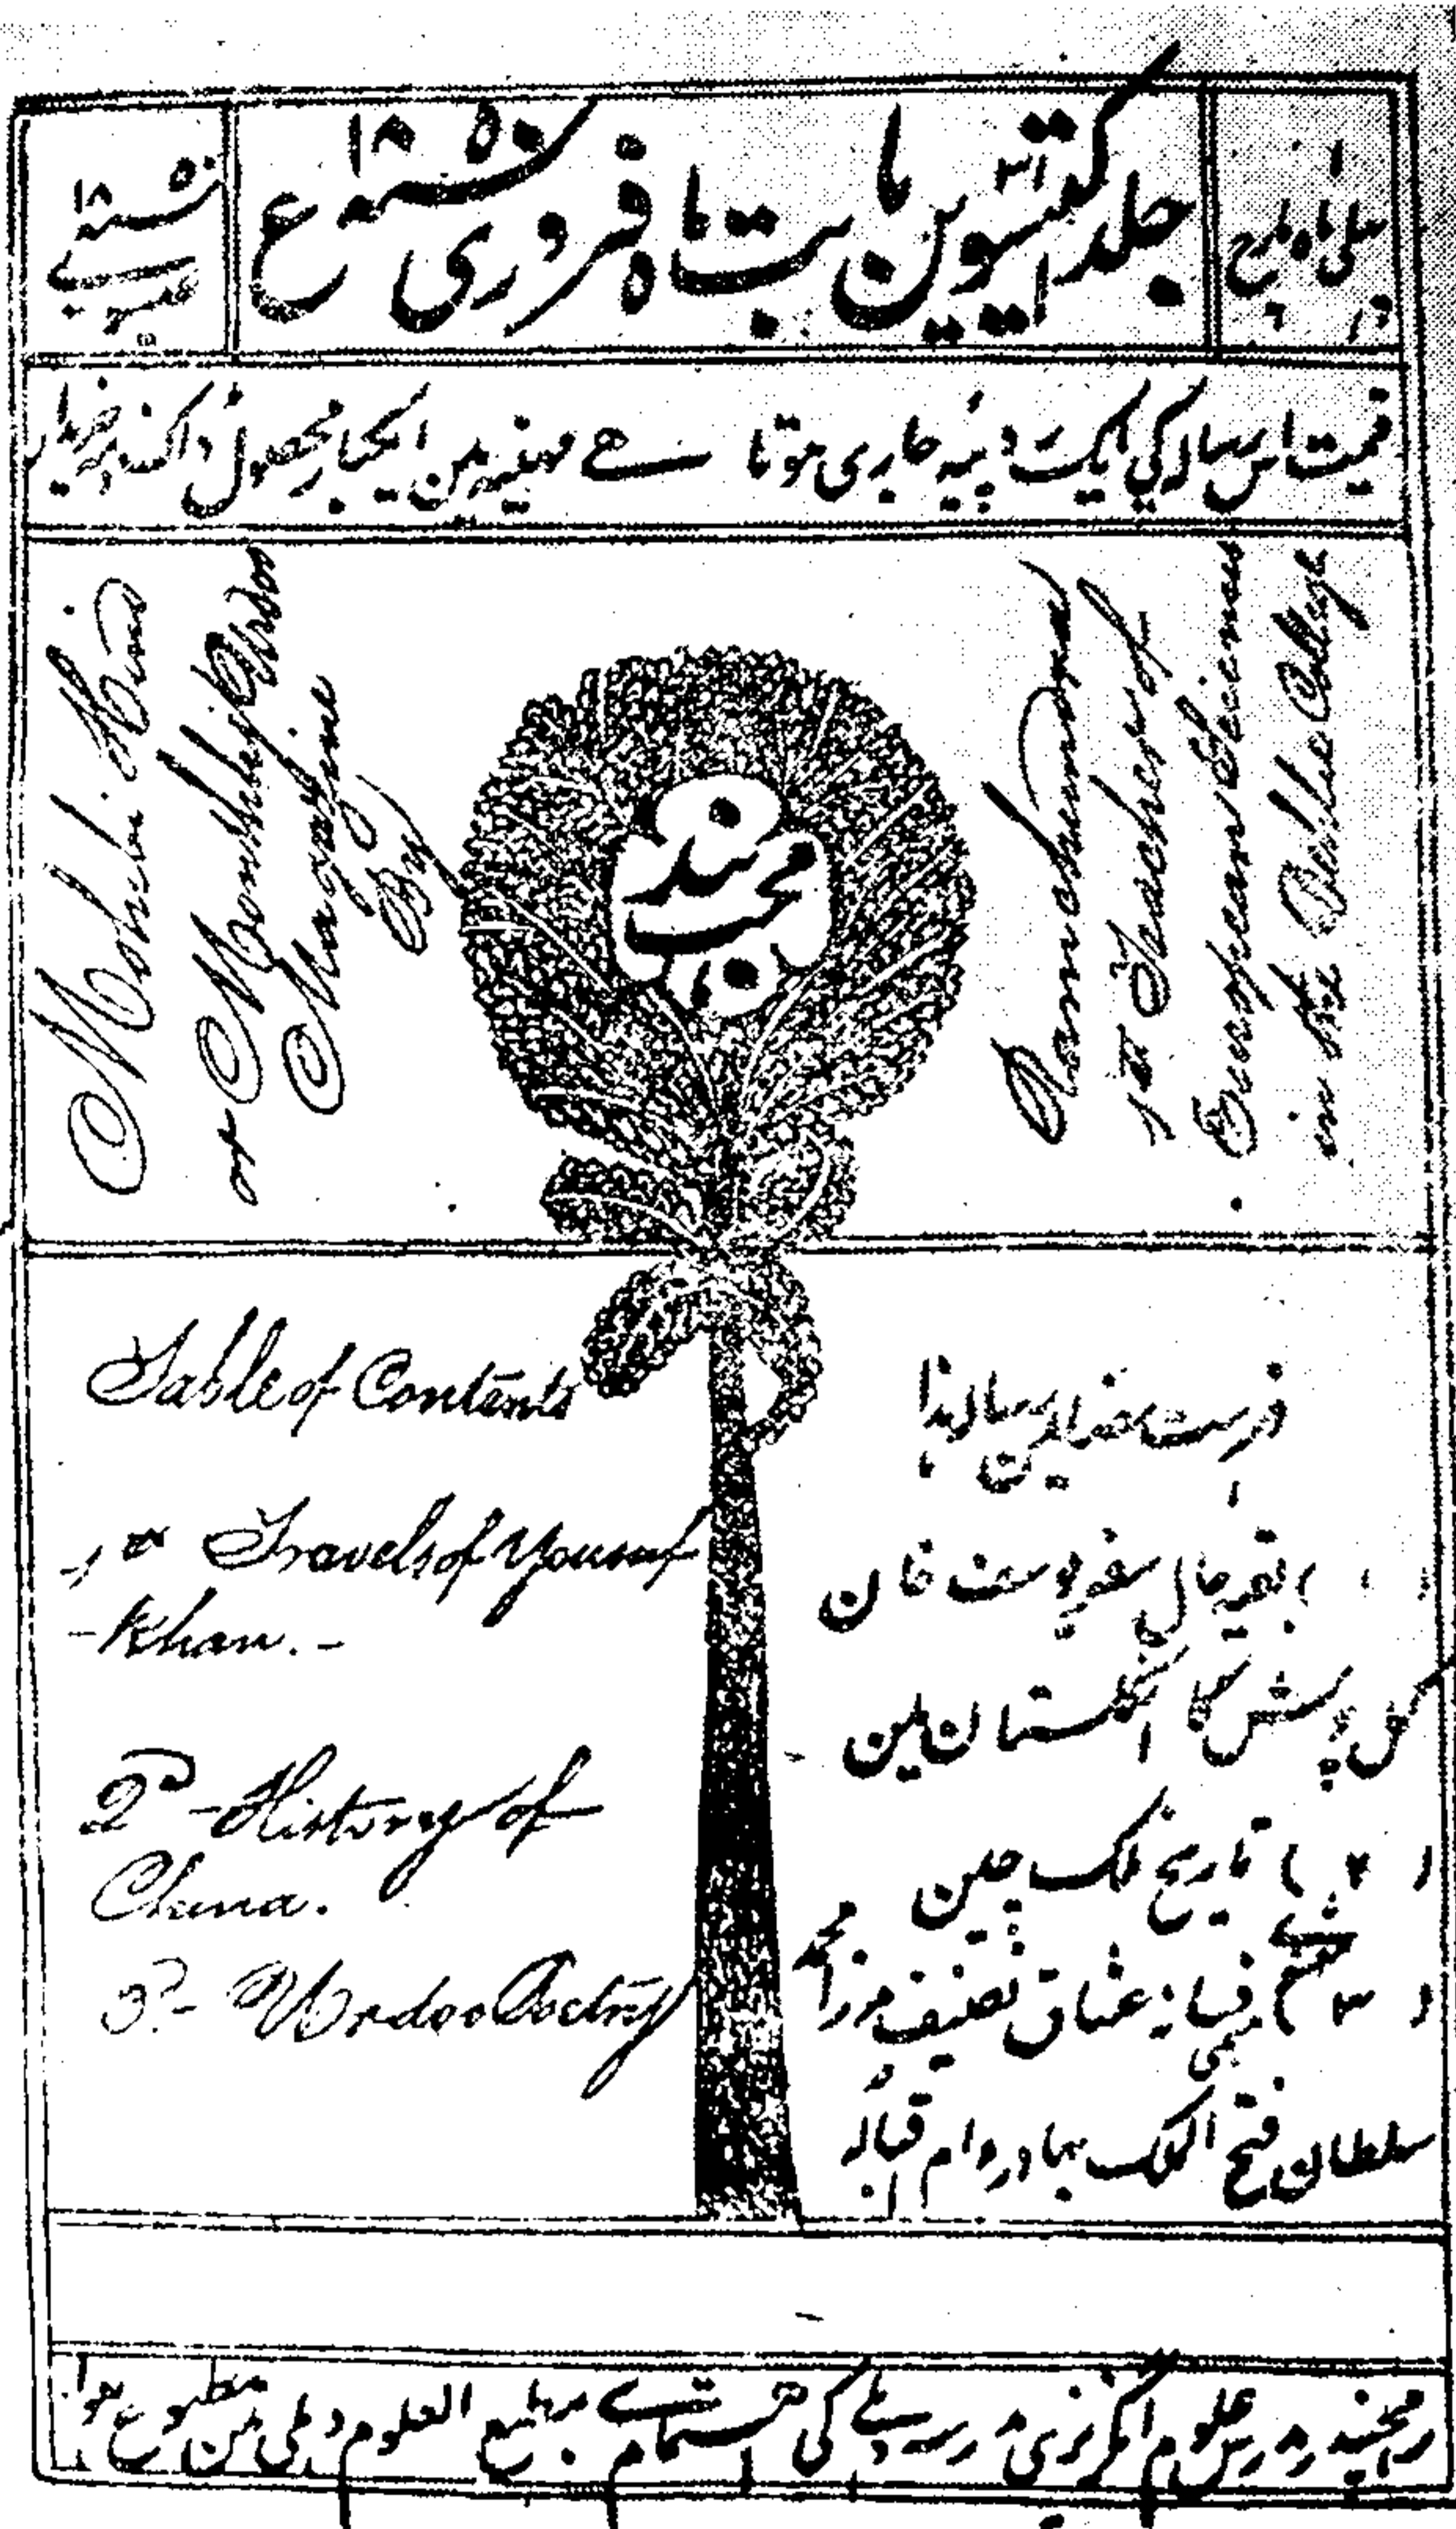 جلد اکتیسوین بابت ماه فروری سنه ۱۸۵۰ ع
۳۱
سنه ۱۸۵۰
قیمت اس رساله کی ایک روپیه هی مهینه مین ایکبار محصول ڈاک
Mohebi Hind
or Monthly Urdoo
Magazine
By
محب هند
Ramchundra
1st Teacher of
European Sciences
in the Dehlie College
Table of Contents
1st Travels of Yousuf
-Khan.-
2d - History of
China.
3d- Urdoo Poetry
فهرست مضامین رساله هذا
بقیه حال سفر یوسف خان
کمل پوش کا انگلستان مین
( ۲ ) تاریخ ملک چین
( ۳ ) فسانه عشاق تصنیف مرزا محمد
سلطان فتح الملک بهادر دام اقباله
رامچندر مدرس علوم انگریزی مدرسه دهلی کی اهتمام سے مطبع العلوم دهلی مین مطبوع هوا